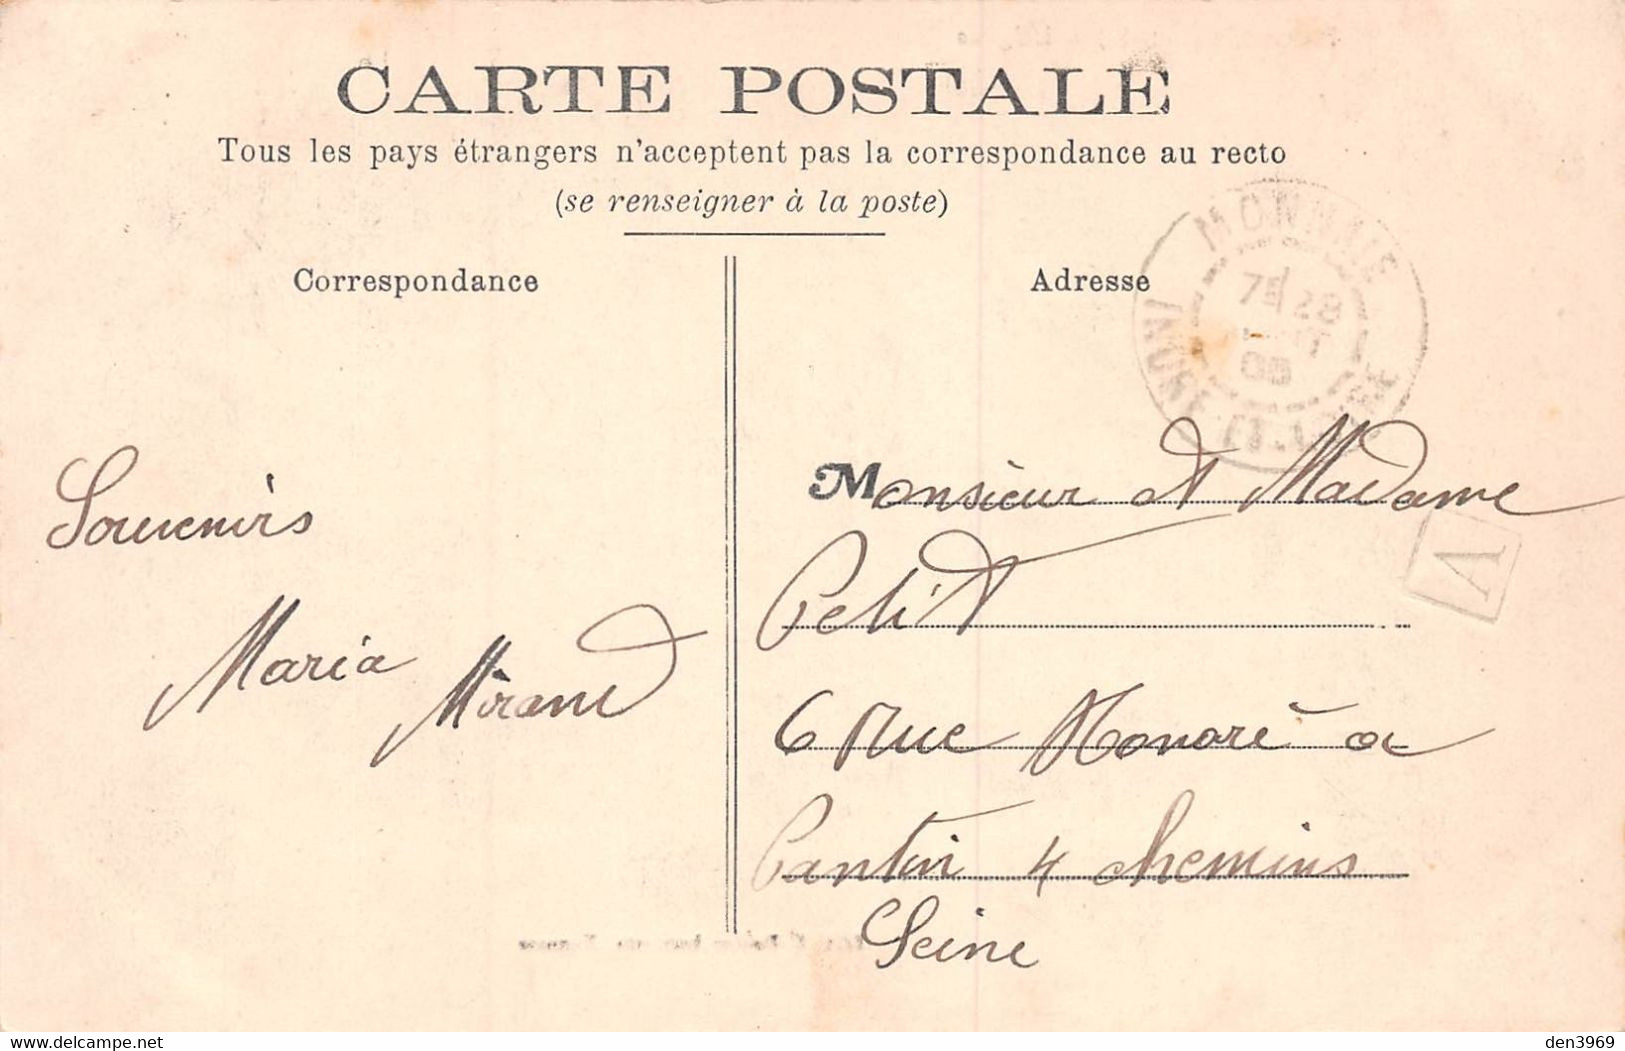 CARTE POSTALE
Tous les pays étrangers n'acceptent pas la correspondance au recto
(se renseigner à la poste)
Correspondance
Adresse
MONNAIE
7E 28
INDRE-ET-LOIRE
Souvenirs
Maria Mirand
Monsieur et Madame
Petit
A
6 Rue Honoré à
Pantin 4 chemins
Seine
delcampe.net
den3969